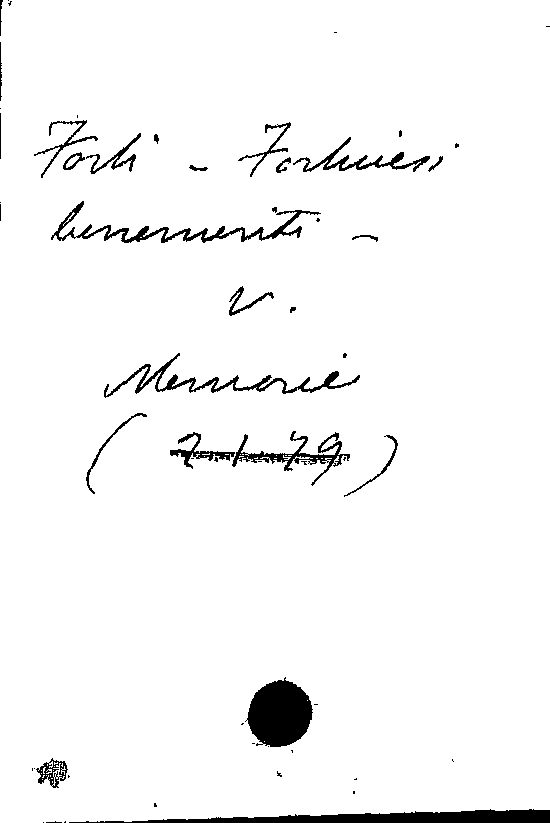 Forlì - Forlivesi
benemeriti -
V.
Memorie
( 2 1 79 )